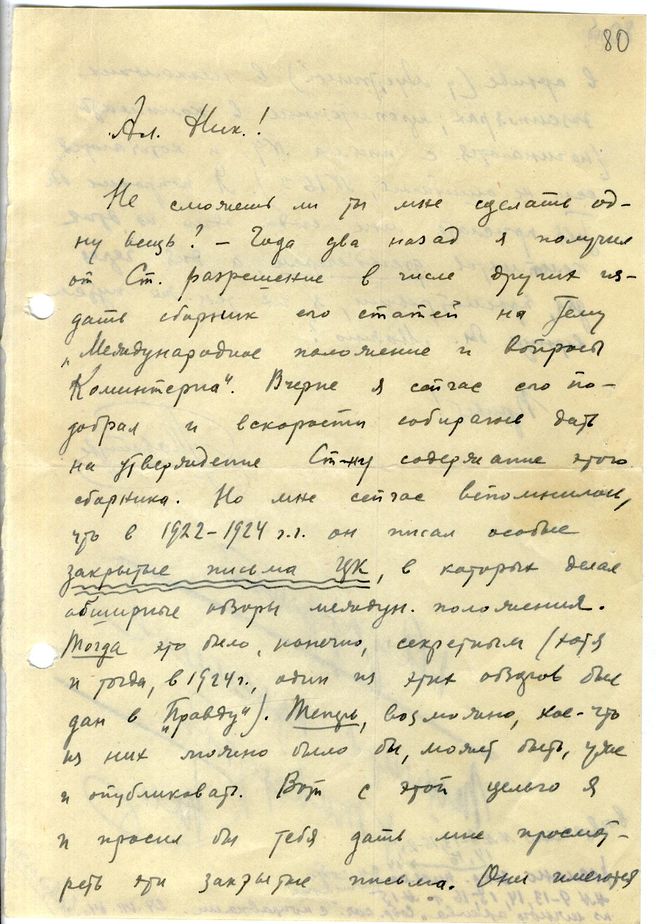 80
Ал. Ник.!
Не сможешь ли ты мне сделать од-
ну вещь? – Года два назад я получил
от Ст. разрешение в числе других из-
дать сборник его статей на тему
„Международное положение и вопросы
Коминтерна“. Вчерне я сейчас его по-
добрал и вскорости собираюсь дать
на утверждение Ст-ну содержание этого
сборника. Но мне сейчас вспомнилось,
что в 1922–1924 г.г. он писал особые
закрытые письма ЦК, в которых делал
обширные обзоры междун. положения.
Тогда это было, конечно, секретным (хотя
и тогда, в 1924 г., один из этих обзоров был
дан в „Правду“). Теперь, возможно, кое-что
из них можно было бы, может быть, уже
и опубликовать. Вот с этой целью я
и просил бы тебя дать мне просмот-
реть эти закрытые письма. Они имеются